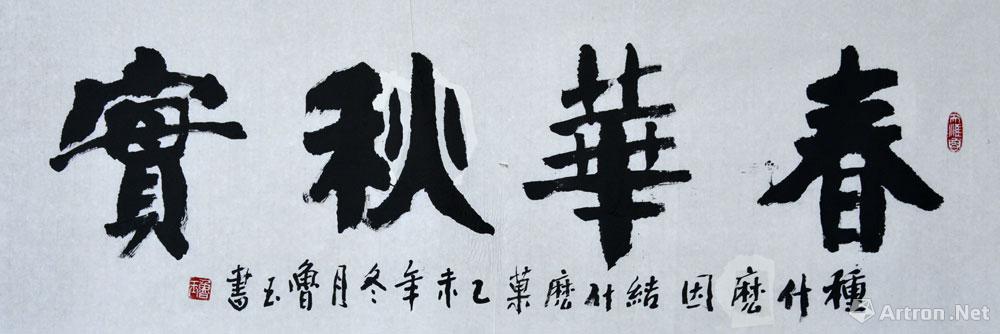 春華秋實
種什麼因結什麼菓乙未年冬月魯玉書
Artron.Net